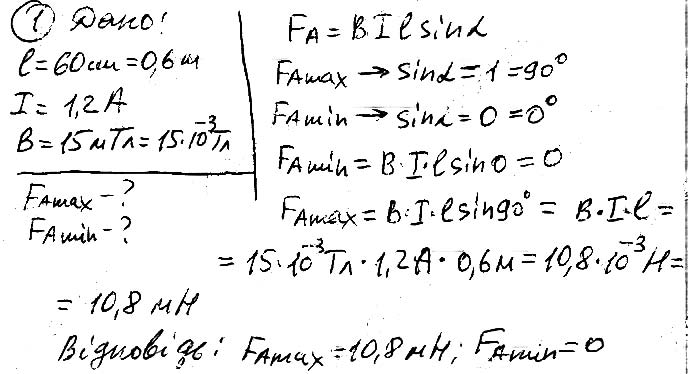 ① Дано:
l = 60 см = 0,6 м
I = 1,2 А
B = 15 мТл = 15·10⁻³ Тл
F_Amax - ?
F_Amin - ?
F_A = B I l sinα
F_Amax → sinα = 1 = 90°
F_Amin → sinα = 0 = 0°
F_Amin = B·I·l sin0 = 0
F_Amax = B·I·l sin90° = B·I·l =
= 15·10⁻³ Тл · 1,2 А · 0,6 м = 10,8·10⁻³ Н =
= 10,8 мН
Відповідь: F_Amax = 10,8 мН; F_Amin = 0